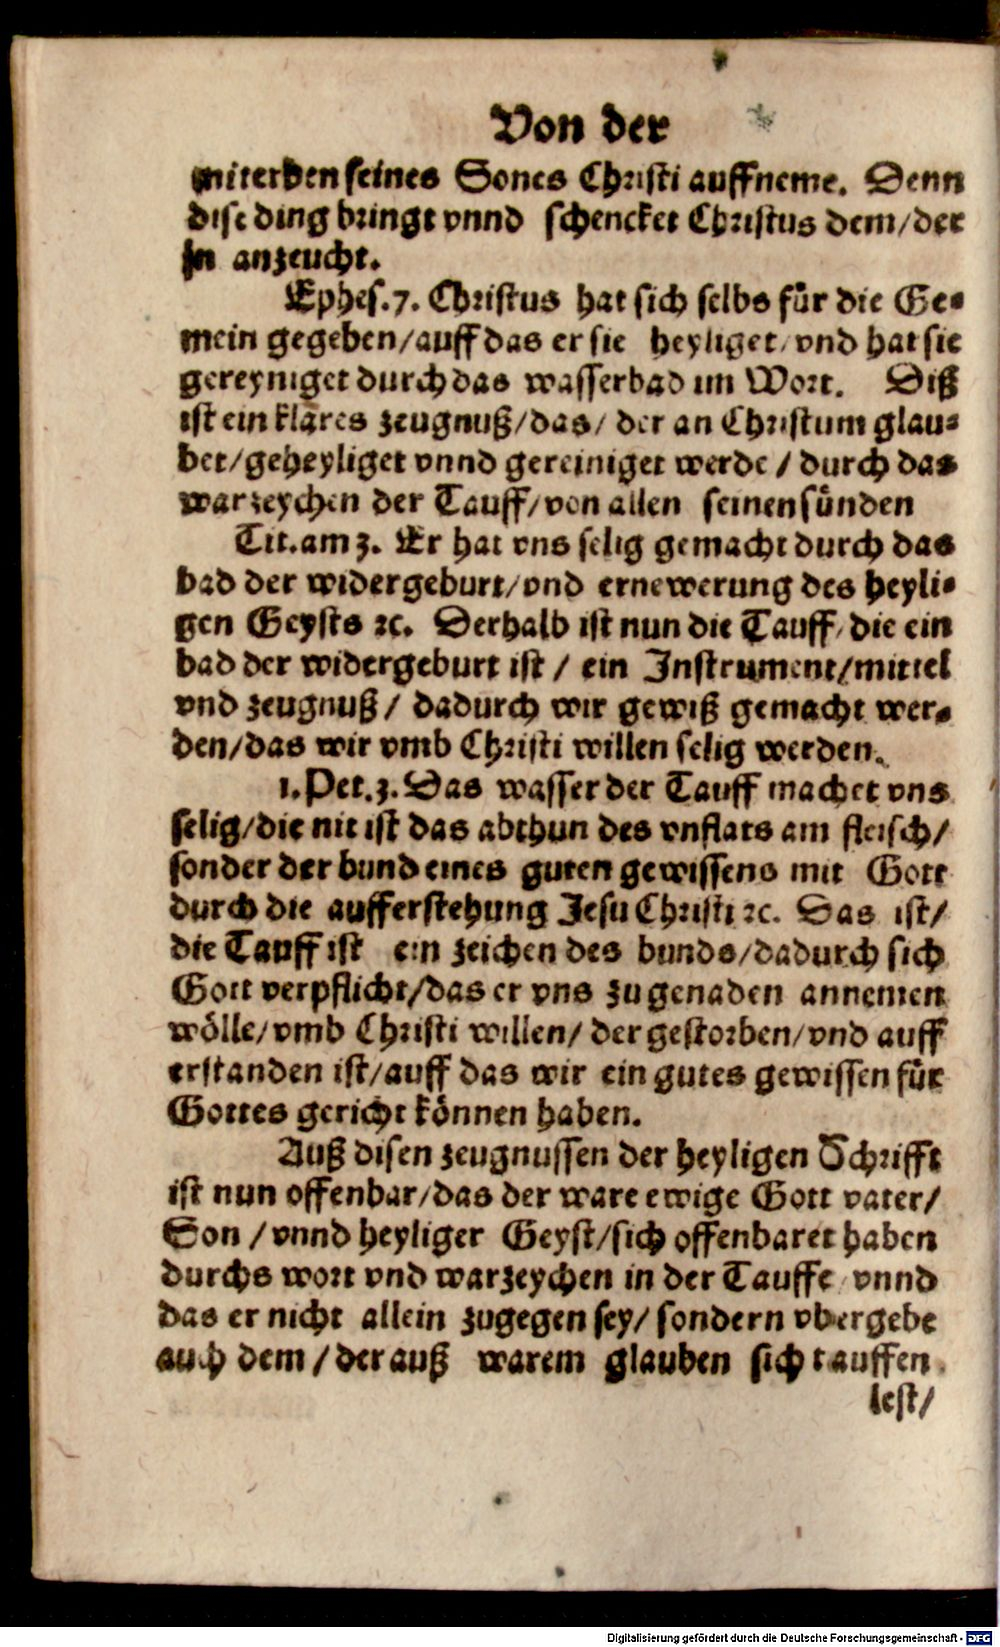 Von der
miterben seines Sones Christi auffneme. Denn
dise ding bringt vnnd schencket Christus dem/der
jn anzeucht.
Ephes.7. Christus hat sich selbs für die Ge-
mein gegeben/auff das er sie heyliget/vnd hat sie
gereyniget durch das wasserbad im Wort. Diß
ist ein klares zeugnuß/das/ der an Christum glau-
bet/geheyliget vnnd gereiniget werde/durch das
warzeychen der Tauff/von allen seinen sünden
Tit.am 3. Er hat vns selig gemacht durch das
bad der widergeburt/vnd ernewerung des heyli-
gen Geysts ꝛc. Derhalb ist nun die Tauff/die ein
bad der widergeburt ist/ ein Instrument/mittel
vnd zeugnuß/ dadurch wir gewiß gemacht wer-
den/das wir vmb Christi willen selig werden.
1.Pet.3. Das wasser der Tauff machet vns
selig/die nit ist das abthun des vnflats am fleisch/
sonder der bund eines guten gewissens mit Gott
durch die aufferstehung Jesu Christi ꝛc. Das ist/
die Tauff ist ein zeichen des bunds/dadurch sich
Gott verpflicht/das er vns zu genaden annemen
wölle/vmb Christi willen/ der gestorben/vnd auff
erstanden ist/auff das wir ein gutes gewissen für
Gottes gericht können haben.
Auß disen zeugnussen der heyligen Schrifft
ist nun offenbar/das der ware ewige Gott vater/
Son/vnnd heyliger Geyst/sich offenbaret haben
durchs wort vnd warzeychen in der Tauffe/vnnd
das er nicht allein zugegen sey/ sondern vbergebe
auch dem/der auß warem glauben sich tauffen
lest/
Digitalisierung gefördert durch die Deutsche Forschungsgemeinschaft - DFG